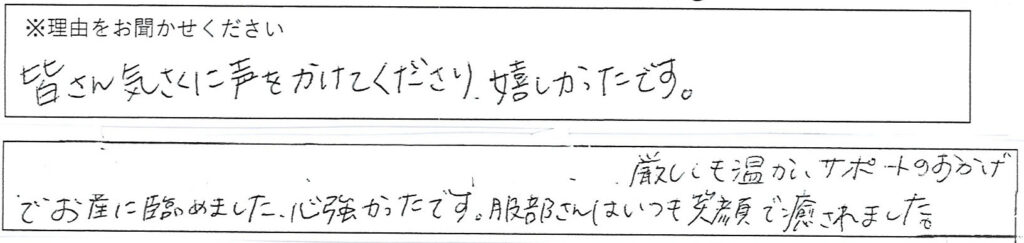 ※理由をお聞かせください
皆さん気さくに声をかけてくださり、嬉しかったです。
厳しくも温かい、サポートのおかげ
でお産に臨めました、心強かったです。服部さんはいつも笑顔で癒されました。